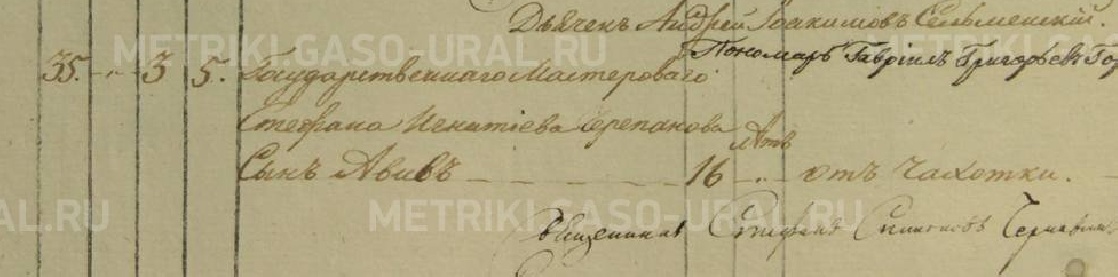 Дьячекъ Андрей Іоакимовъ Сельменскій.
METRIKI.GASO-URAL.RU
Пономарь Гавріилъ Григорьевъ
35. 3 5. Государственнаго Мастероваго
Стефана Игнатіева Черепанова
лѣтъ
Сынъ Авивъ 16 отъ Чахотки.
AL.RU METRIKI.GASO-URAL.RU
Священникъ Стефанъ